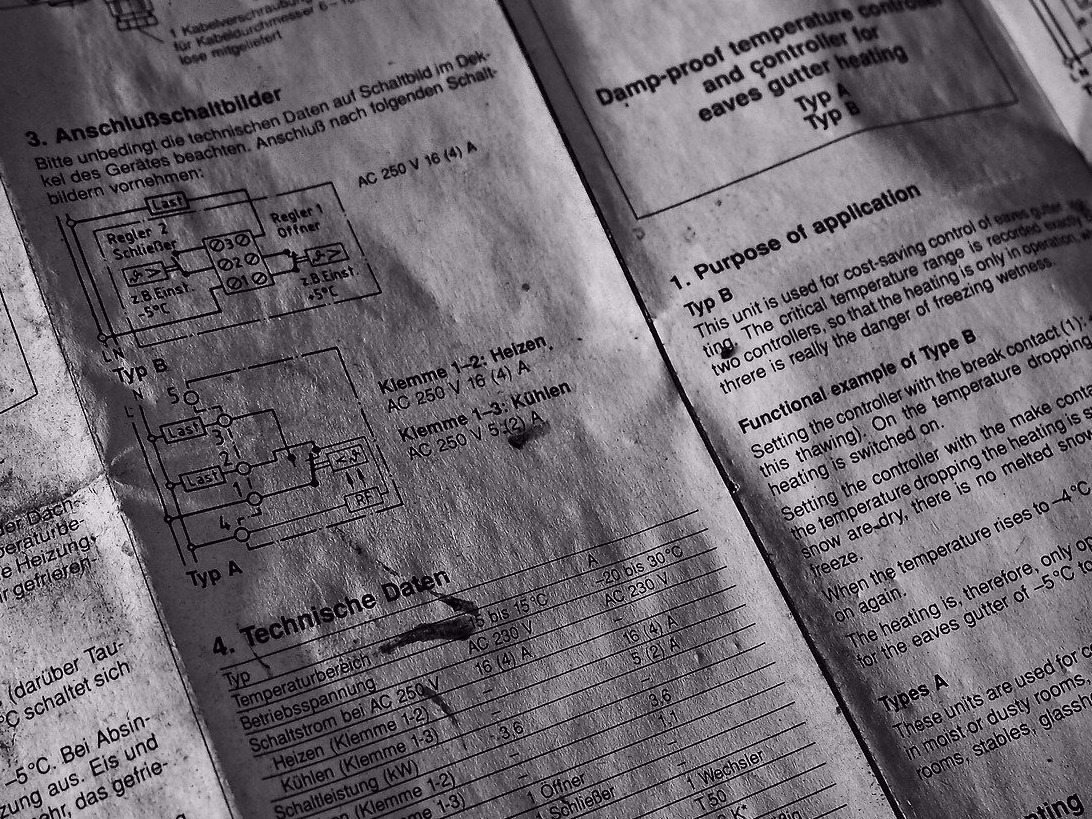 1 Kabelverschraubung
für Kabeldurchmesser 6 –
lose mitgeliefert
3. Anschlußschaltbilder
Bitte unbedingt die technischen Daten auf Schaltbild im Dek-
kel des Gerätes beachten. Anschluß nach folgenden Schalt-
bildern vornehmen:
AC 250 V 16 (4) A
Last
Regler 2
Schließer
Regler 1
Öffner
3
2
1
z.B.Einst.
-5°C
z.B.Einst.
+5°C
L N
Typ B
N
L
5
Last
3
2
Last
1
RF
4
Typ A
Klemme 1–2: Heizen
AC 250 V 16 (4) A
Klemme 1–3: Kühlen
AC 250 V 5 (2) A
4. Technische Daten
Typ A
Temperaturbereich 5 bis 15°C –20 bis 30°C
Betriebsspannung AC 230 V AC 230 V
Schaltstrom bei AC 250 V 16 (4) A –
Heizen (Klemme 1-2) – 16 (4) A
Kühlen (Klemme 1-3) – 5 (2) A
Schaltleistung (kW) 3,6 –
(Klemme 1-2) – 3,6
(Klemme 1-3) – 1,1
1 Öffner –
1 Schließer 1 Wechsler
T 50
K*
der Dach-
peraturbe-
e Heizung,
gefrieren-
(darüber Tau-
°C schaltet sich
–5°C. Bei Absin-
zung aus. Eis und
ehr, das gefrie-
Damp-proof temperature controller
and controller for
eaves gutter heating
Typ A
Typ B
1. Purpose of application
Typ B
This unit is used for cost-saving control of eaves gutter
ting. The critical temperature range is recorded exactly
two controllers, so that the heating is only in operation
threre is really the danger of freezing wetness.
Functional example of Type B
Setting the controller with the break contact (1):
this thawing). On the temperature dropping
heating is switched on.
Setting the controller with the make
the temperature dropping the heating is
show are dry, there is no melted snow
freeze.
When the temperature rises to –4°C,
on again.
The heating is, therefore, only
for the eaves gutter of –5°C to
Types A
These units are used for
in moist or dusty rooms,
rooms, stables,